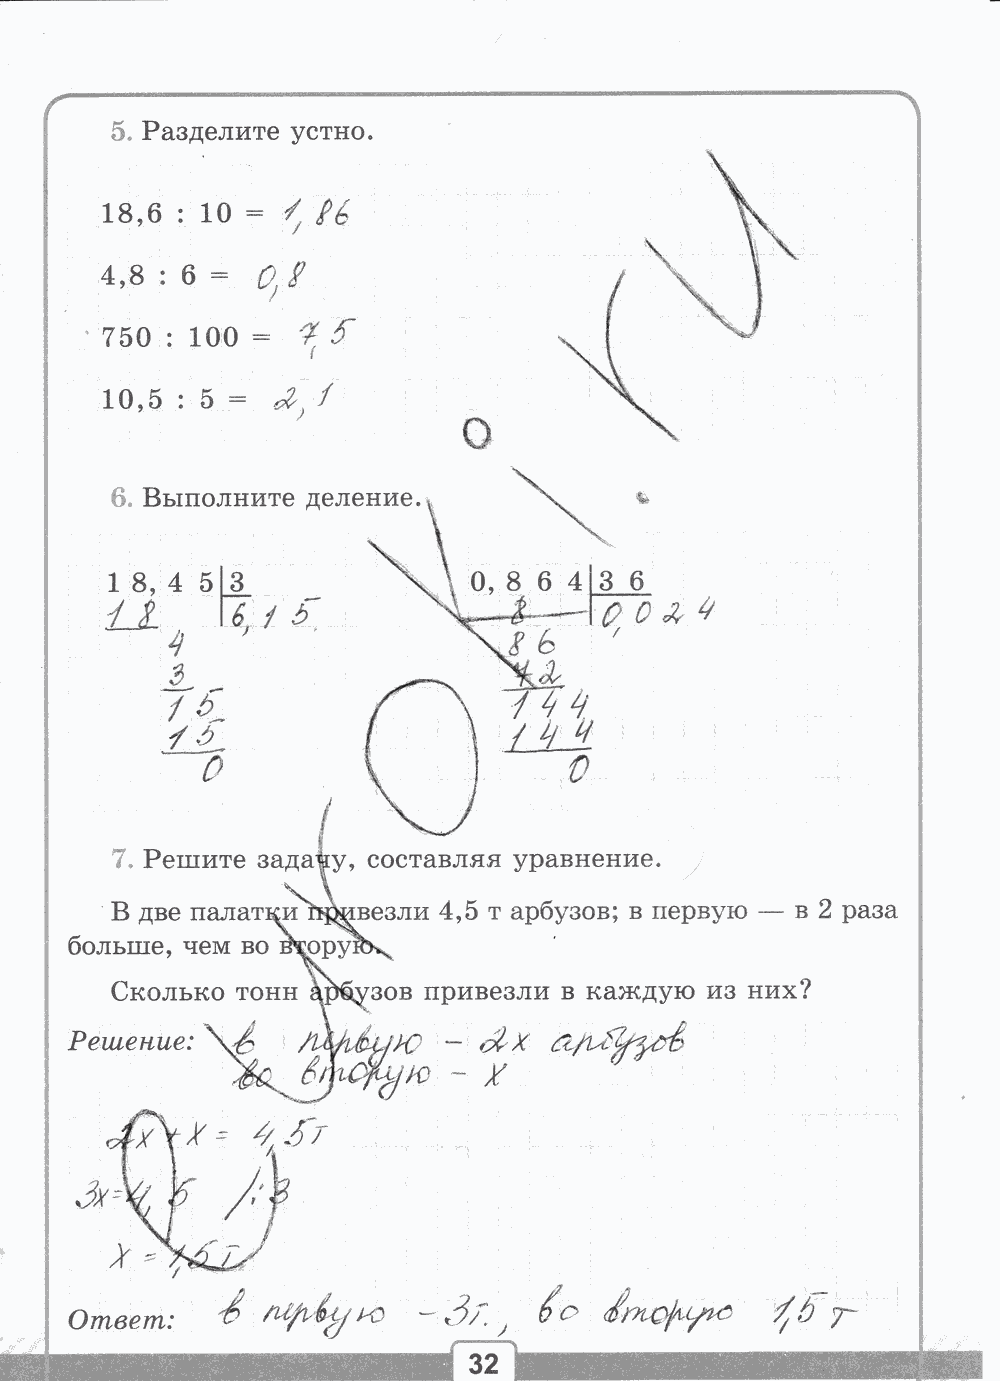 5. Разделите устно.
18,6 : 10 = 1,86
4,8 : 6 = 0,8
750 : 100 = 7,5
10,5 : 5 = 2,1
6. Выполните деление.
1 8, 4 5 3
1 8 6, 1 5
4
3
1 5
1 5
0
0, 8 6 4 3 6
8 0, 0 2 4
8 6
7 2
1 4 4
1 4 4
0
7. Решите задачу, составляя уравнение.
В две палатки привезли 4,5 т арбузов; в первую — в 2 раза
больше, чем во вторую.
Сколько тонн арбузов привезли в каждую из них?
Решение: в первую - 2х арбузов
во вторую - х
2х + х = 4,5 т
3х = 4,5 /:3
х = 1,5 т
Ответ: в первую - 3т., во вторую 1,5 т
32